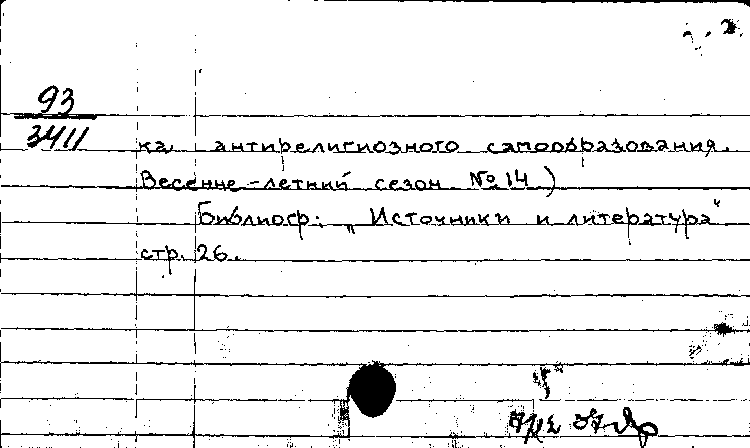 2.
93
3411
ка антирелигиозного самообразования.
Весенне-летний сезон № 14)
Библиогр: „Источники и литература"
стр. 26.